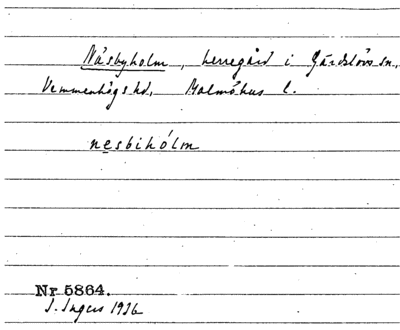 Näsbyholm, herregård i Gärdslövs sn,
Vemmenhögs hd, Malmöhus l.
nesbihólm
Nr 5864.
I. Ingers 1936